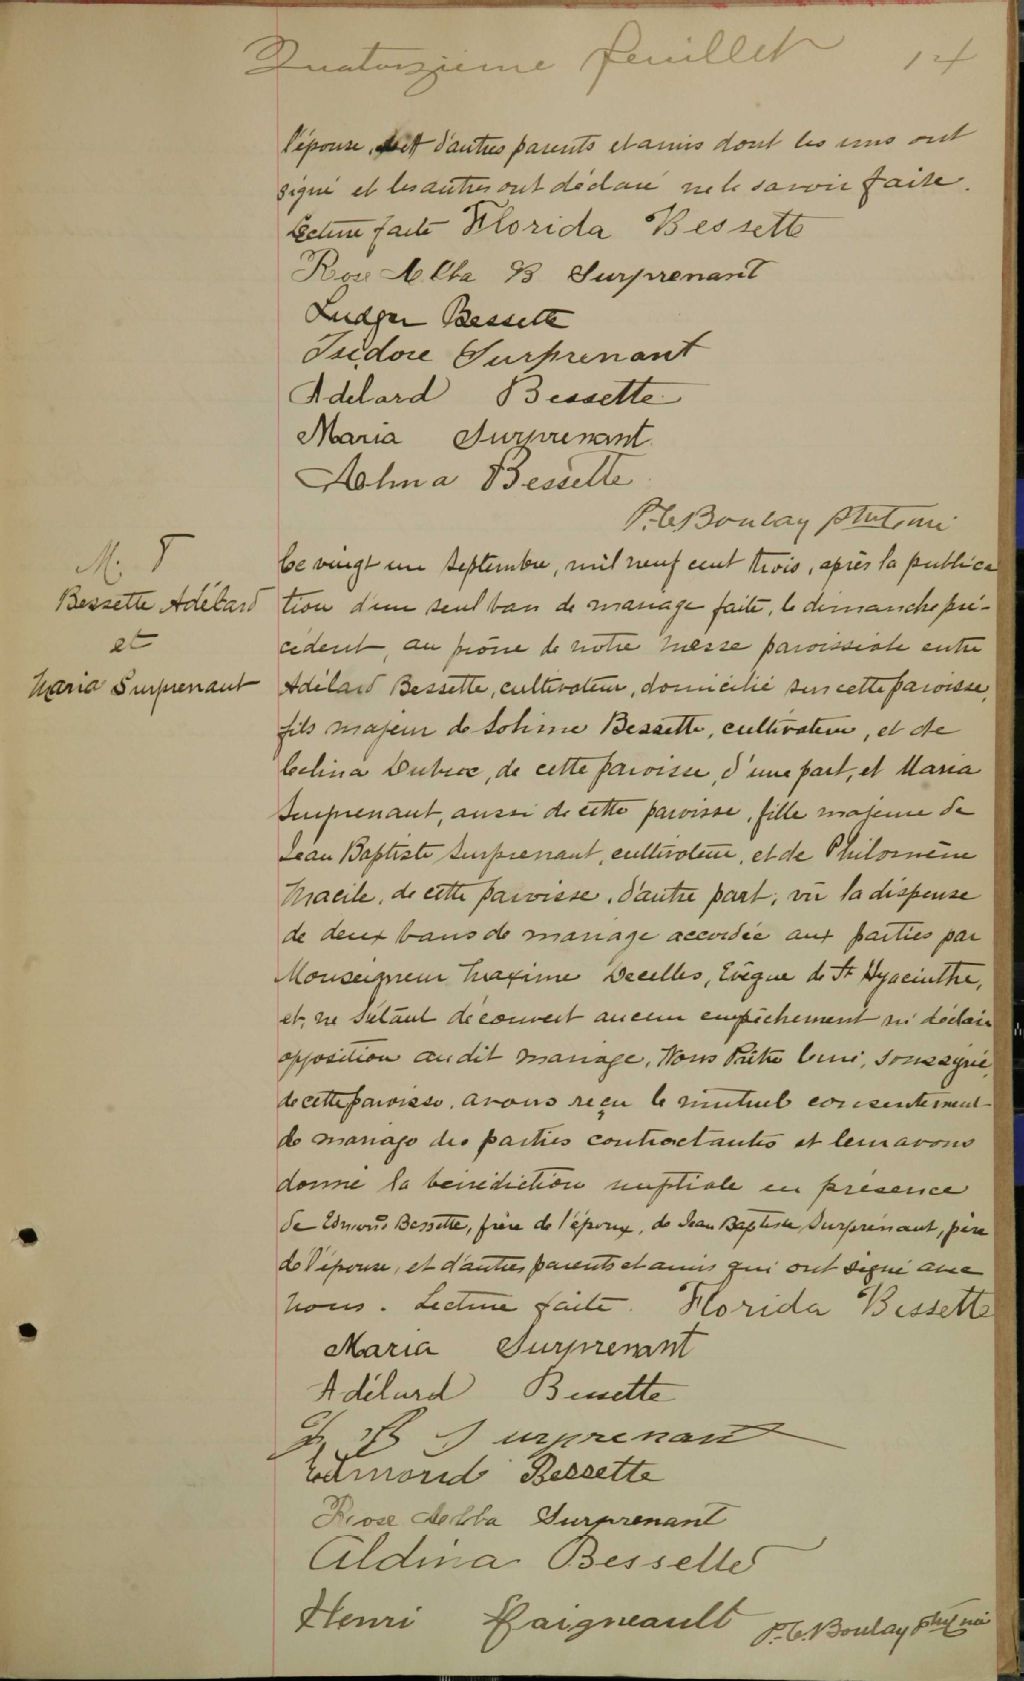 Quatorzième feuillet 14
l'épouse, et d'autres parents et amis dont les uns ont
signé et les autres ont déclaré ne le savoir faire.
Lecture faite Florida Bessette
Rose Alba B Surprenant
Ludger Bessette
Isidore Surprenant
Adelard Bessette
Maria Surprenant
Alma Bessette
P. C. Boulay ptre curé
M. 8
Bessette Adélard
et
Maria Surprenant
Ce vingt un septembre, mil neuf cent trois, après la publica
tion d'un seul ban de mariage faite, le dimanche pré-
cédent, au prône de notre messe paroissiale entre
Adélard Bessette, cultivateur, domicilié sur cette paroisse,
fils majeur de Solime Bessette, cultivateur, et de
Celina Dubroc, de cette paroisse, d'une part, et Maria
Surprenant, aussi de cette paroisse, fille majeure de
Jean Baptiste Surprenant, cultivateur, et de Philomène
Macile, de cette paroisse, d'autre part, vû la dispense
de deux bans de mariage accordée aux parties par
Monseigneur Maxime Decelles, Evêque de St Hyacinthe,
et, ne s'étant découvert aucun empêchement ni déclaré
opposition au dit mariage, Nous Prêtre Curé, soussigné,
de cette paroisse, avons reçu le mutuel consentement
de mariage des parties contractantes et leur avons
donné la bénédiction nuptiale en présence
de Edmond Bessette, frère de l'époux, de Jean Baptiste Surprenant, père
de l'épouse, et d'autres parents et amis qui ont signé avec
nous. Lecture faite. Florida Bessette
Maria Surprenant
Adélard Bessette
J B Surprenant
Edmond Bessette
Rose Alba Surprenant
Aldina Bessette
Henri Faigneault P. C. Boulay ptre curé